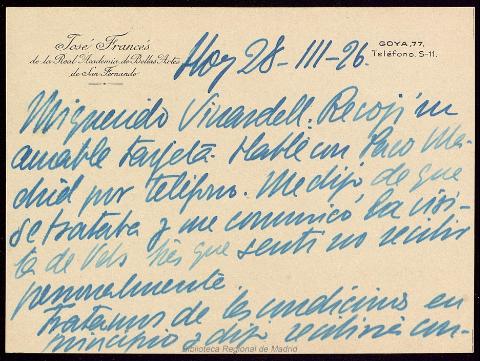 José Francés
de la Real Academia de Bellas Artes
de San Fernando
GOYA, 77,
Teléfono. S-11.
Hoy 28-III-26.
Mi querido Vinardell: Recojí su
amable tarjeta. Hablé con Paco Ma-
drid por teléfono. Me dijo de que
se trataba y me comunicó la visi-
ta de Vds tres que sentí no recibir
personalmente.
Tratamos de las condiciones en
principio y
Biblioteca Regional de Madrid